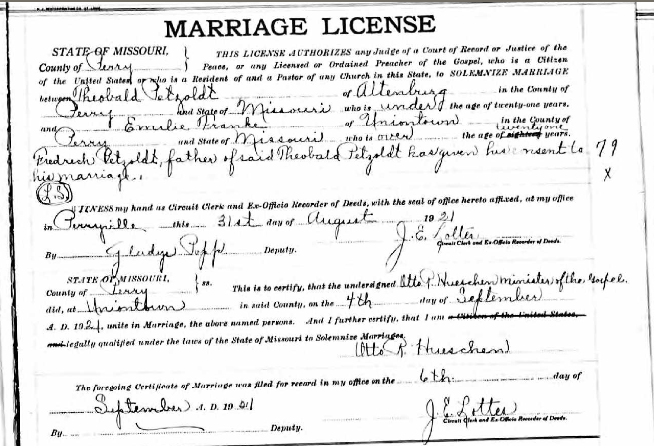 MARRIAGE LICENSE
STATE OF MISSOURI,
County of Perry
THIS LICENSE AUTHORIZES any Judge of a Court of Record or Justice of the
Peace, or any Licensed or Ordained Preacher of the Gospel, who is a Citizen
of the United States, or who is a Resident of and a Pastor of any Church in this State, to SOLEMNIZE MARRIAGE
between Theobald Petzoldt of Altenburg in the County of
Perry and State of Missouri who is under the age of twenty-one years.
and Emilie Franke of Uniontown in the County of
Perry and State of Missouri who is over the age of eighteen years.
twentyone
Fredrech Petzoldt, father of said Theobald Petzoldt has given his consent to 79
his marriage. X
(L.S.)
WITNESS my hand as Circuit Clerk and Ex-Officio Recorder of Deeds, with the seal of office hereto affixed, at my office
in Perryville this 31st day of August 1921
J. E. Lottes
Circuit Clerk and Ex-Officio Recorder of Deeds.
By Gladys Popp Deputy.
STATE OF MISSOURI,
County of Perry
ss. This is to certify, that the undersigned Otto R. Hueschen minister of the Gospel.
did, at Uniontown in said County, on the 4th day of September
A. D. 1921, unite in Marriage, the above named persons. And I further certify, that I am a Citizen of the United States,
and legally qualified under the laws of the State of Missouri to Solemnize Marriages.
Otto R. Hueschen
The foregoing Certificate of Marriage was filed for record in my office on the 6th day of
September A. D. 1921
J. E. Lottes
Circuit Clerk and Ex-Officio Recorder of Deeds.
By Deputy.